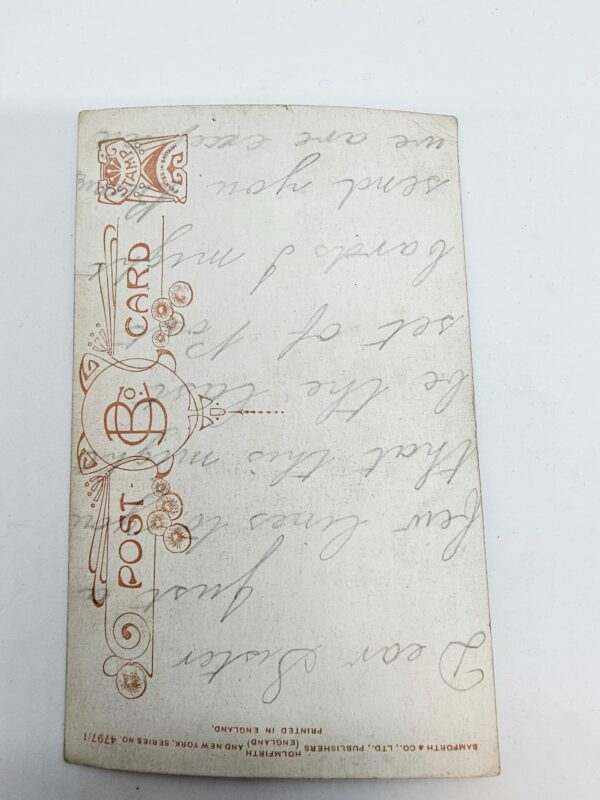 POST CARD
B Co.
STAMP
Dear Sister
just a
few lines to you
that this might
be the last
set of Post
Cards I might
send you
we are
BAMFORTH & CO., LTD., PUBLISHERS HOLMFIRTH (ENGLAND) AND NEW YORK. SERIES NO. 4797/1
PRINTED IN ENGLAND.